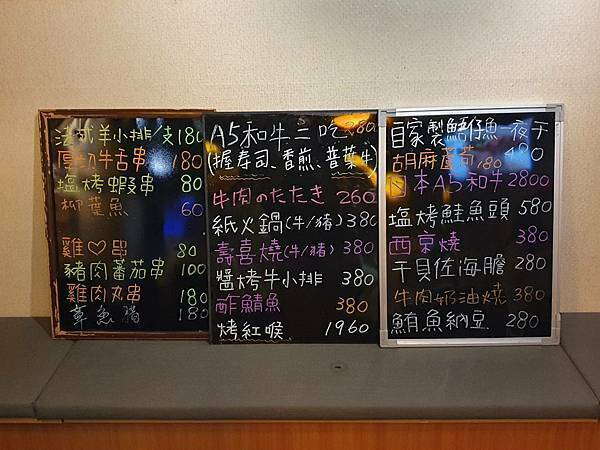 法式羊小排/支180
厚切牛舌串 180
塩烤蝦串 80
柳葉魚 60
雞♡串 80
豬肉蕃茄串 100
雞肉丸串 180
章魚 180
A5和牛三吃 280
(握寿司、香煎、普葉牛)
牛肉のたたき 260
紙火鍋(牛/豬) 380
壽喜燒(牛/豬) 380
醬烤牛小排 380
酢鯖魚 380
烤紅喉 1960
自家製鯖仔魚一夜干 480
胡麻蘆筍 180
日本A5和牛 2800
塩烤鮭魚頭 580
西京燒 380
干貝佐海膽 280
牛肉奶油燒 380
鮪魚納豆 280